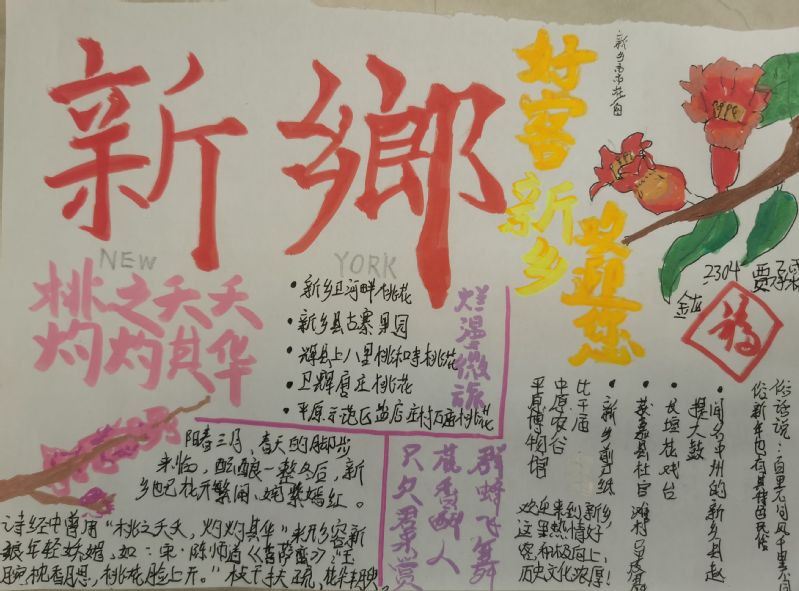 新鄉
NEW YORK
好客新乡
欢迎您
新乡市市花自
2304
福
桃之夭夭
灼灼其华
• 新乡卫河畔桃花
• 新乡县古寨果园
• 辉县上八里桃花
• 卫辉唐庄桃花
• 平原示范区
烂漫微旅
阳春三月，春天的脚步
来临，酝酿一整冬后，新
乡也已花开繁闹、姹紫嫣红。
诗经中曾用“桃之夭夭，灼灼其华”来形容新
娘年轻娇媚，如：宋·陈师道《菩萨蛮》：“玉
腕枕香腮，桃花脸上开。”枝干扶疏，花朵丰腴。
群蜂飞舞
花香醉人
只欠君来赏
俗话说：百里不同风千里不同
俗新年也有其特色民俗
• 闻名中州的新乡
提大鼓
• 长垣花戏台
• 获嘉县杜官滩村
• 新乡剪纸
比干庙
中原农谷
平原博物馆
欢迎来到新乡
这里热情好
客、积极向上，
历史文化浓厚！